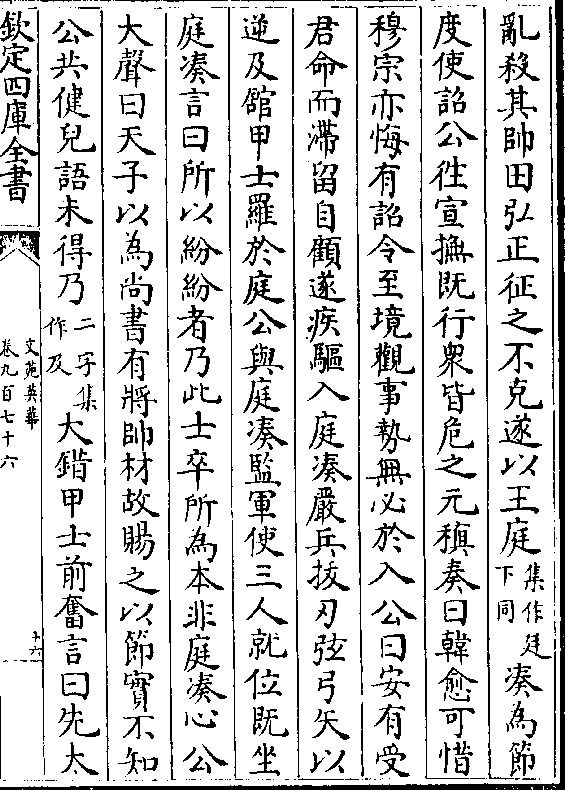 亂殺其帥田弘正征之不克遂以王庭集作廷下同凑為節
度使詔公徃宣撫既行衆皆危之元稹奏曰韓愈可惜
穆宗亦悔有詔令至境觀事勢無必於入公曰安有受
君命而滯留自顧遂疾驅入庭凑嚴兵拔刃弦弓矢以
逆及舘甲士羅於庭公與庭凑監軍使三人就位既坐
庭凑言曰所以紛紛者乃此士卒所為本非庭凑心公
大聲曰天子以為尚書有將帥材故賜之以節實不知
公共健兒語未得乃二字集作及大錯甲士前奮言曰先太
欽定四庫全書
文苑英華
卷九百七十六
十六